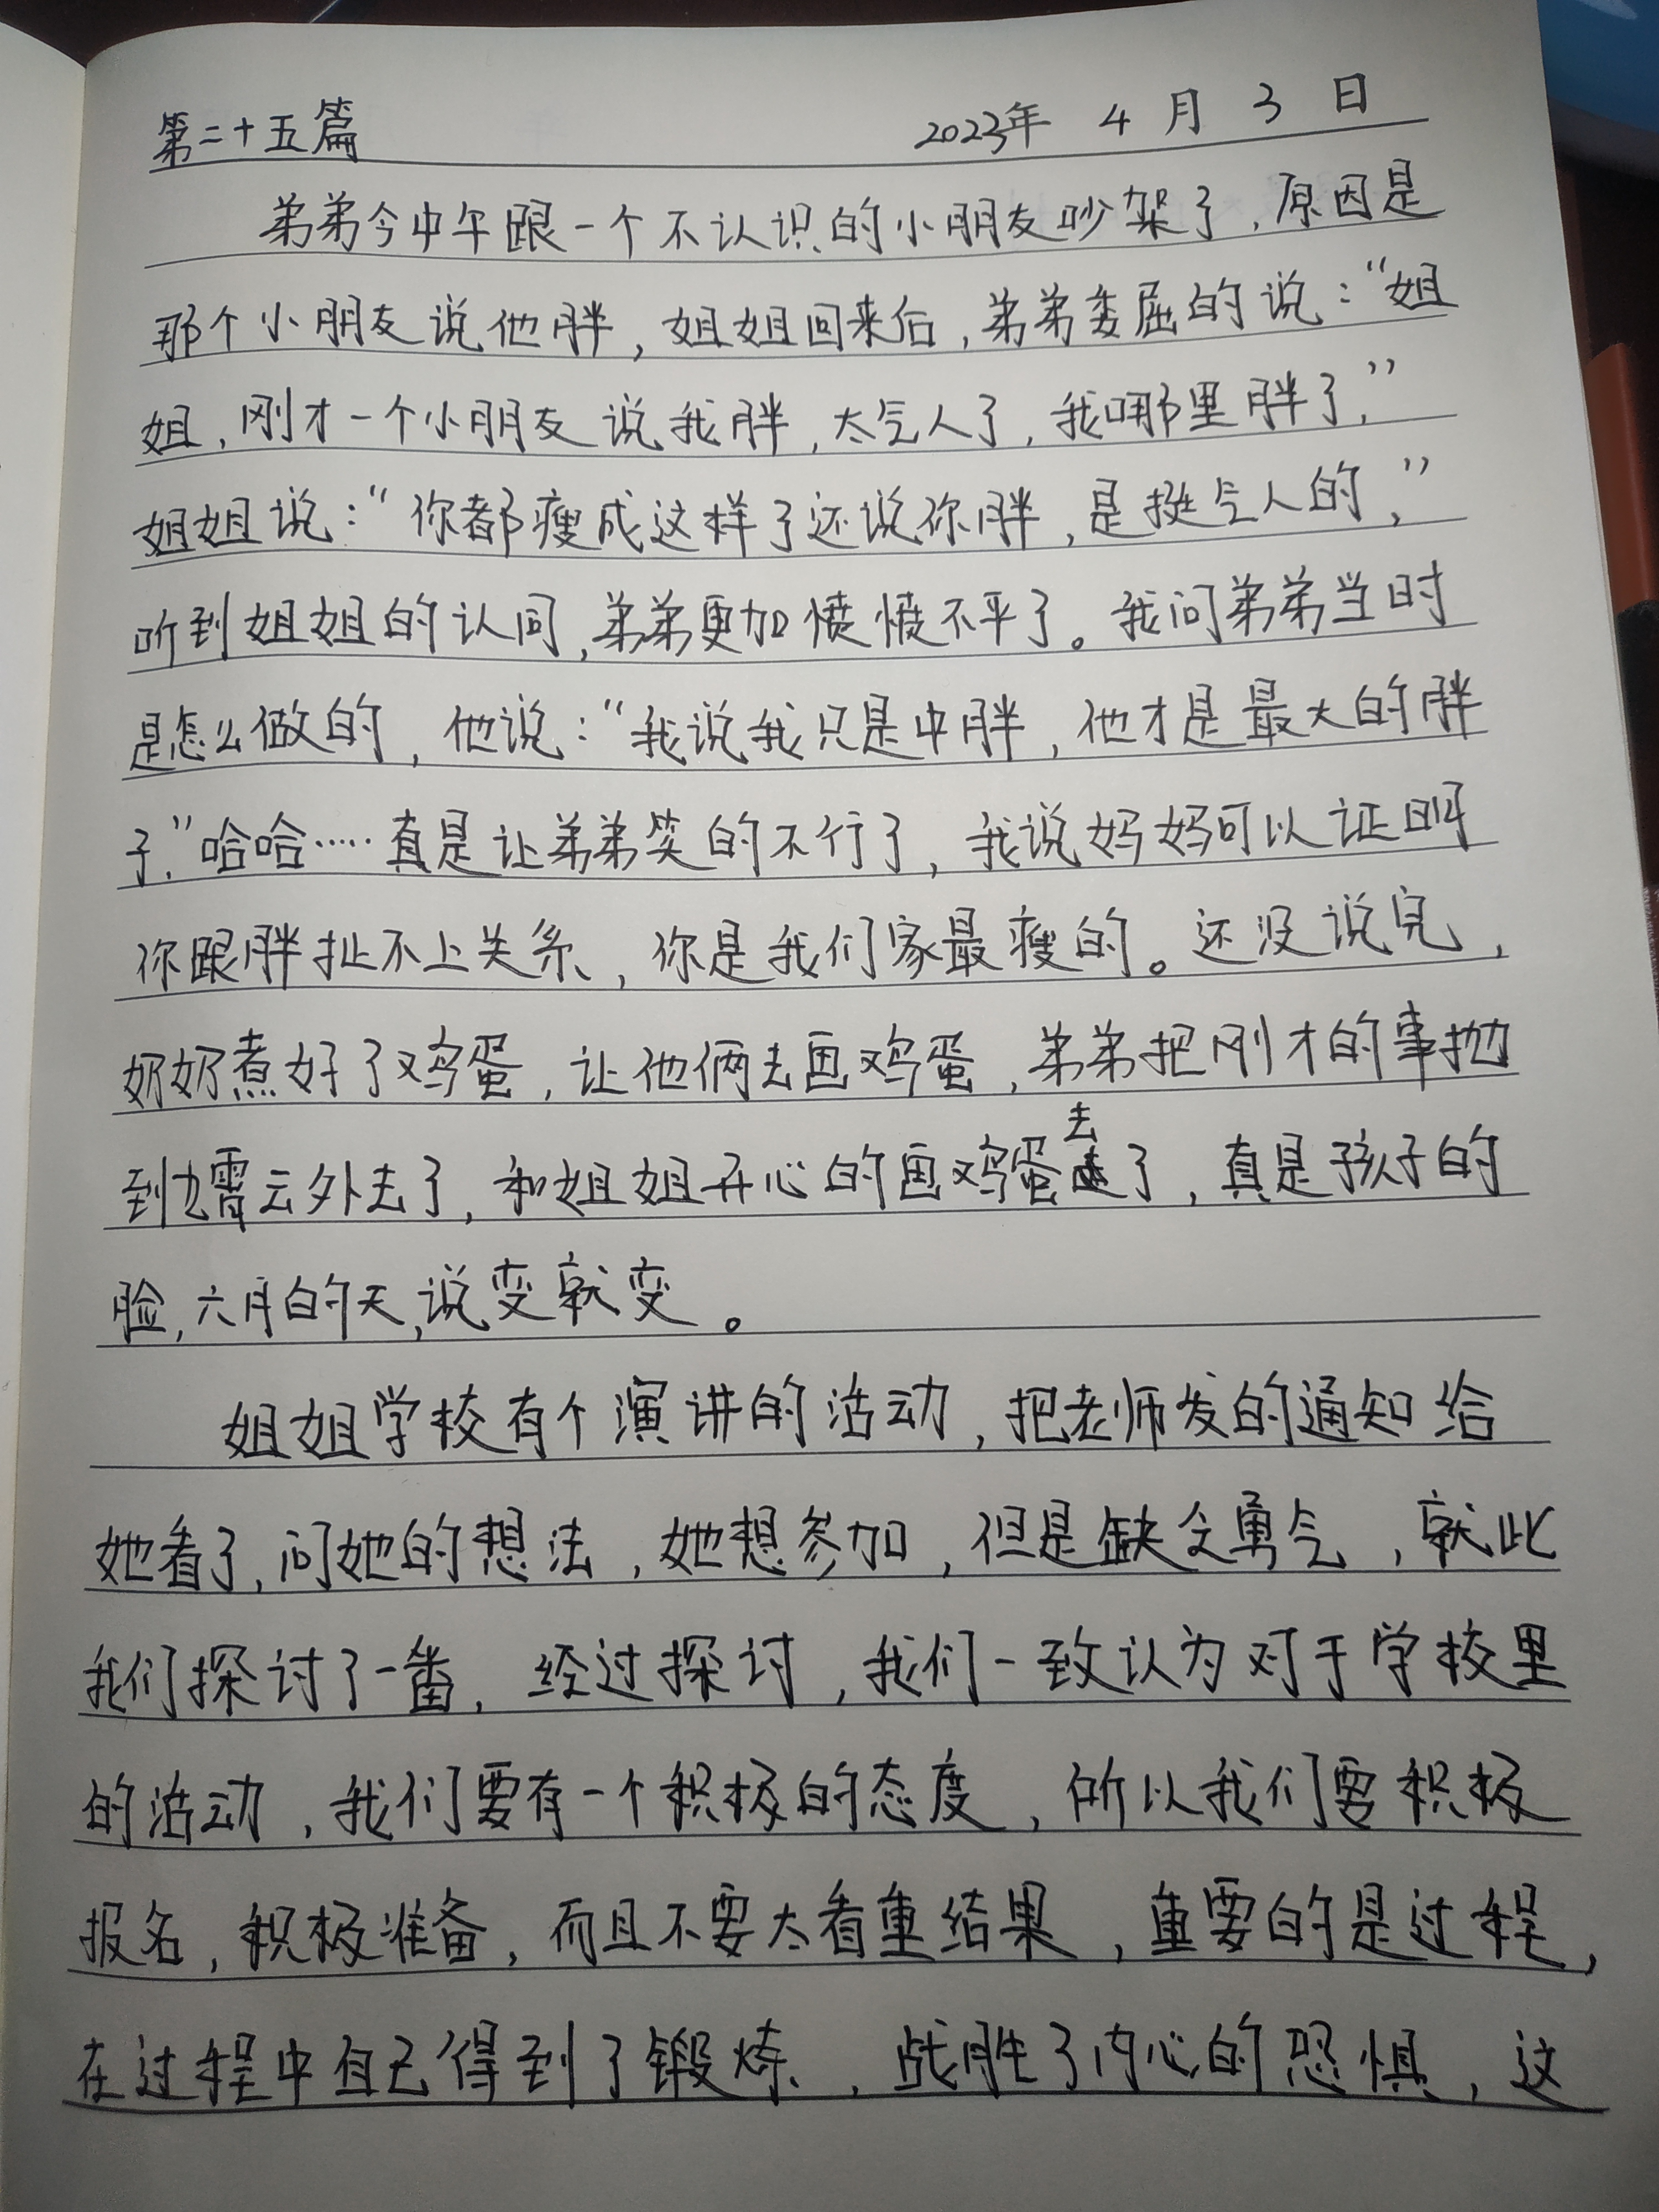 第二十五篇 2023年 4 月 3 日
弟弟今中午跟一个不认识的小朋友吵架了,原因是
那个小朋友说他胖,姐姐回来后,弟弟委屈的说:“姐
姐,刚才一个小朋友说我胖,太气人了,我哪里胖了,”
姐姐说:“你都瘦成这样了还说你胖,是挺气人的,”
听到姐姐的认同,弟弟更加愤愤不平了。我问弟弟当时
是怎么做的,他说:“我说我只是中胖,他才是最大的胖
子,”哈哈……真是让弟弟笑的不行了,我说妈妈可以证明
你跟胖扯不上关系,你是我们家最瘦的。还没说完,
奶奶煮好了鸡蛋,让他俩去画鸡蛋,弟弟把刚才的事抛
到九霄云外去了,和姐姐开心的画鸡蛋去了,真是孩子的
脸,六月的天,说变就变。
姐姐学校有个演讲的活动,把老师发的通知给
她看了,问她的想法,她想参加,但是缺乏勇气,就此
我们探讨了一番,经过探讨,我们一致认为对于学校里
的活动,我们要有一个积极的态度,所以我们要积极
报名,积极准备,而且不要太看重结果,重要的是过程,
在过程中自己得到了锻炼,战胜了内心的恐惧,这